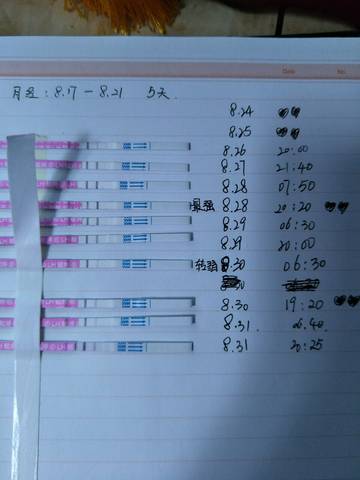 Date
月经：8.17 — 8.21 5天.
8.24
8.25
8.26 20:00
8.27 21:40
8.28 07:50
最强 8.28 20:20
8.29 06:30
8.29 20:00
转弱 8.30 06:30
8.30 19:20
8.31. 06.40.
8.31 20:25